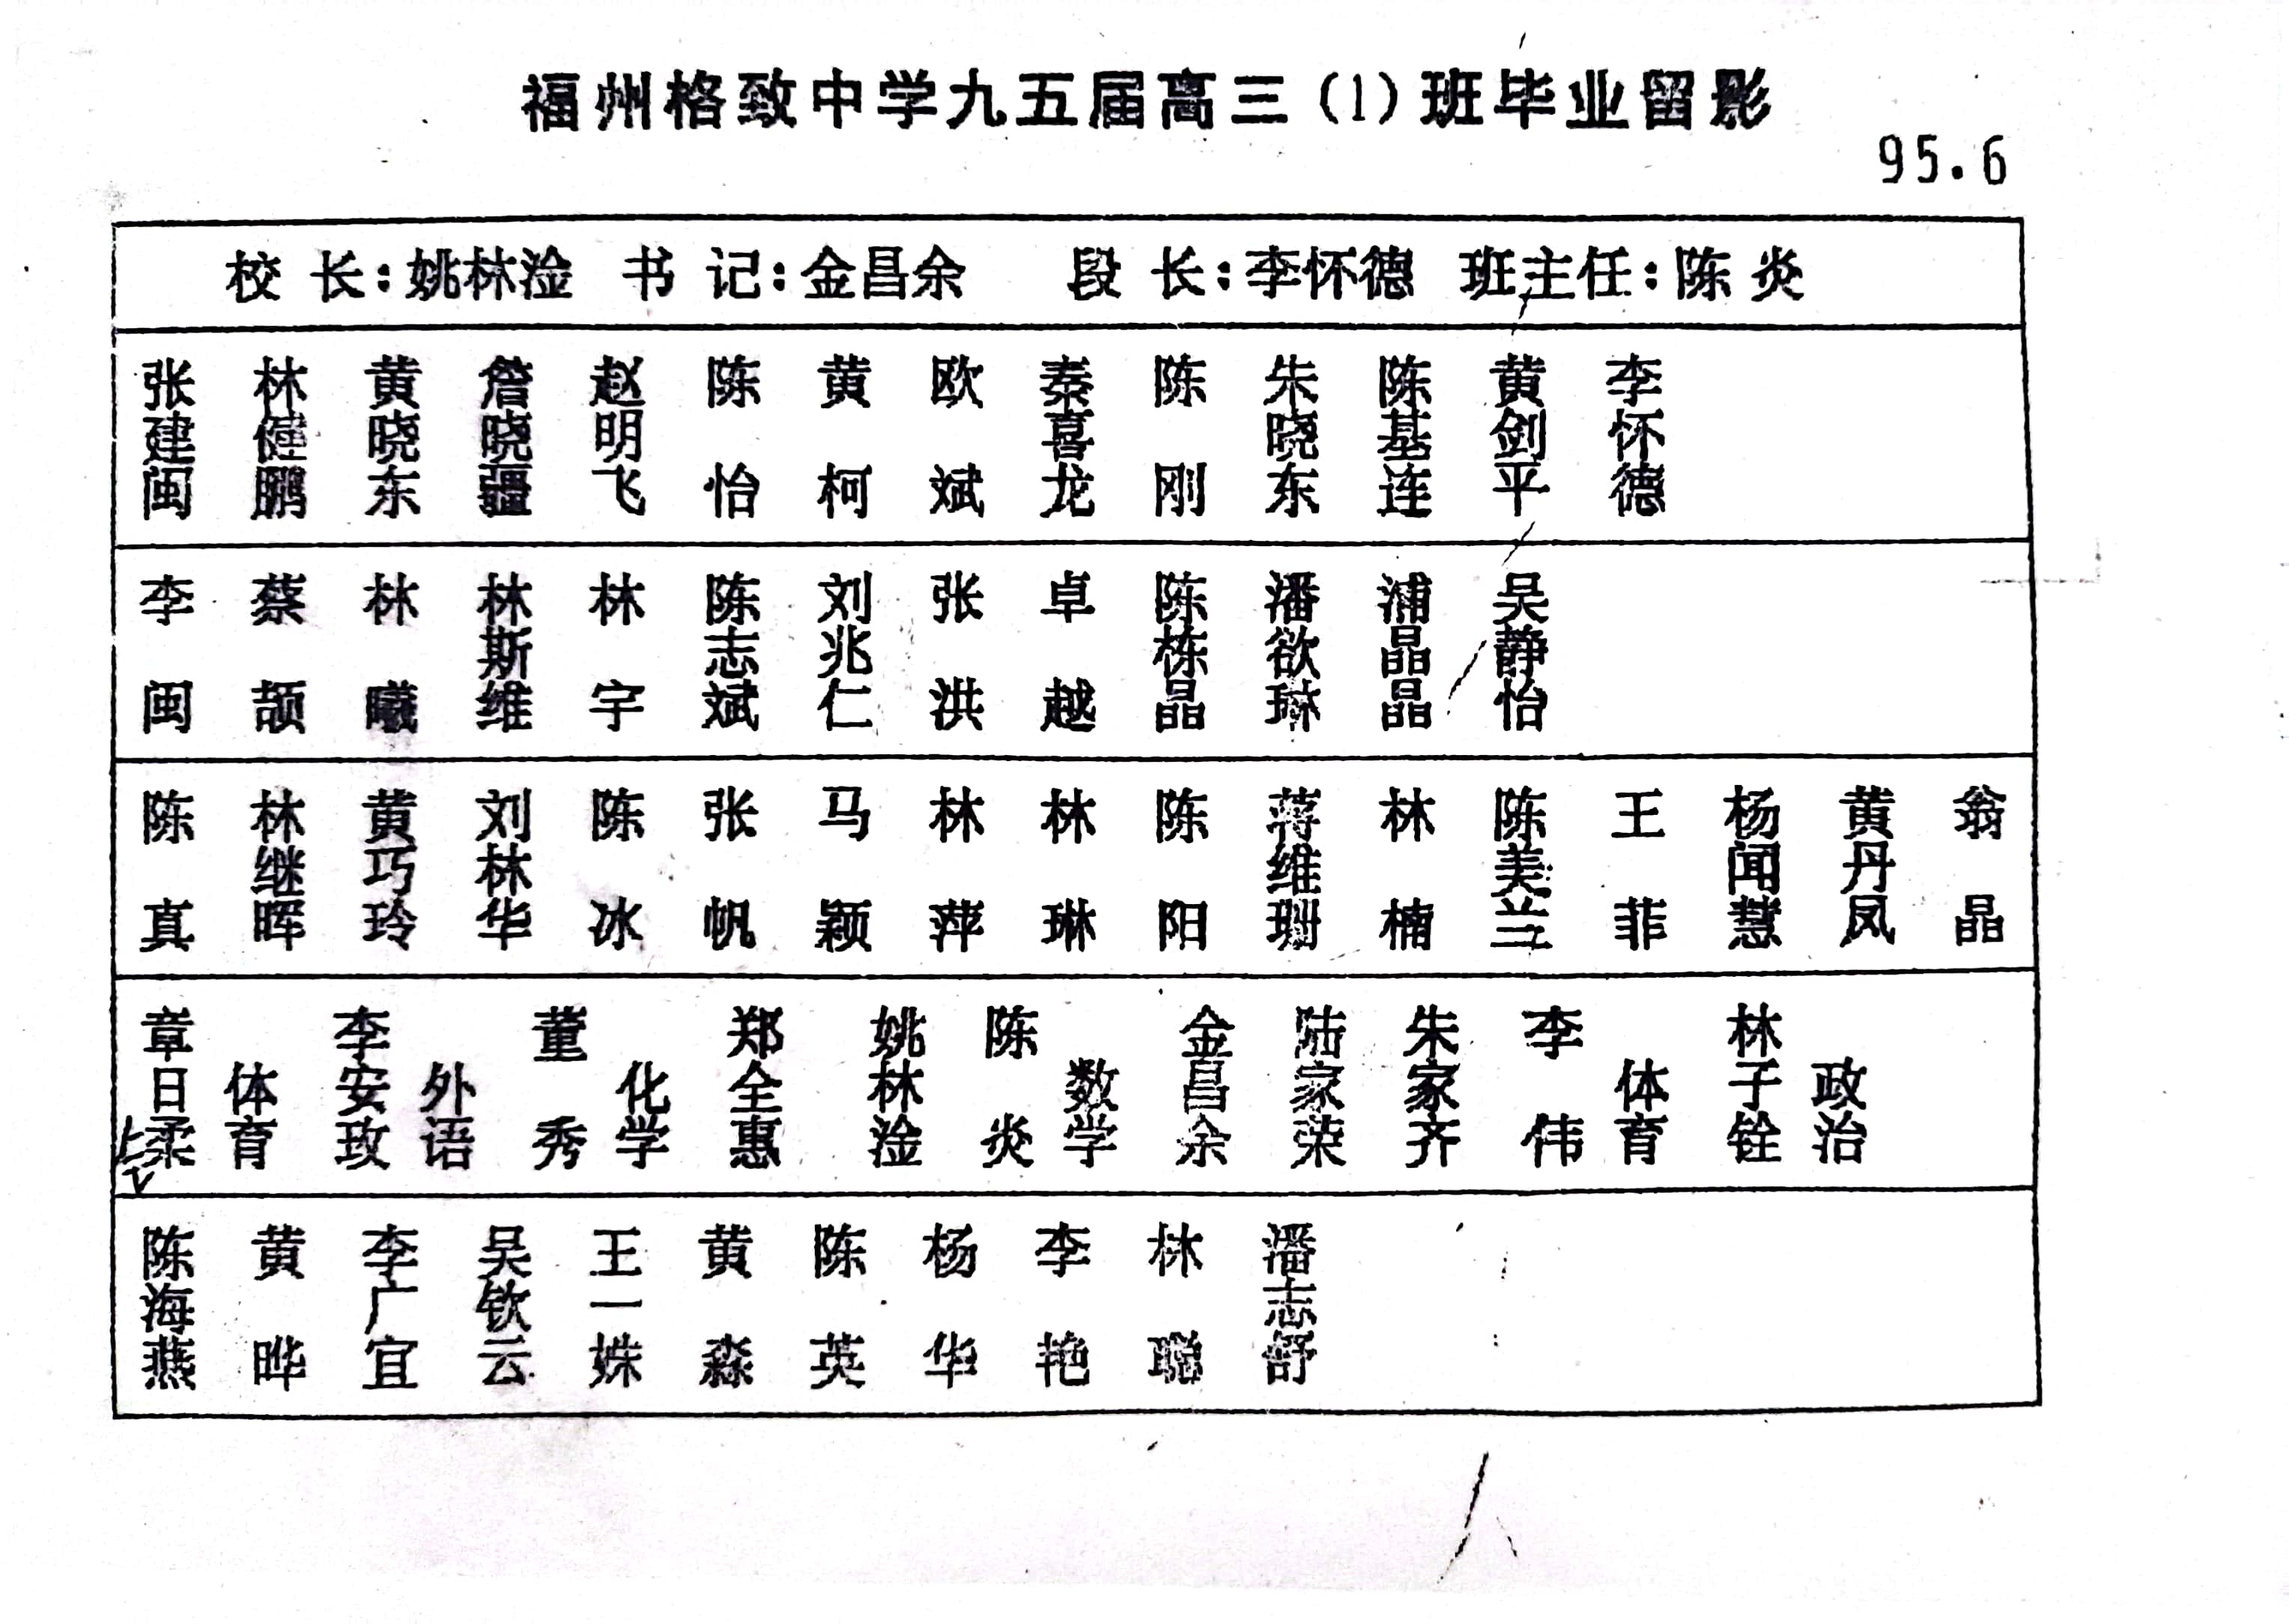 福州格致中学九五届高三(1)班毕业留影
95.6
校长:姚林淦 书记:金昌余 段长:李怀德 班主任:陈炎
张建闽 林健鹏 黄晓东 詹晓疆 赵明飞 陈怡 黄柯 欧斌 秦喜龙 陈刚 朱晓东 陈基连 黄剑平 李怀德
李闽 蔡颉 林曦 林斯维 林宇 陈志斌 刘兆仁 张洪 卓越 陈栋晶 潘欲琳 浦晶晶 吴静怡
陈真 林继晖 黄巧玲 刘林华 陈冰 张帆 马颖 林萍 林琳 陈阳 蒋维珊 林楠 陈美兰 王菲 杨闻慧 黄丹凤 翁晶
章日柔 体育 李安玫 外语 董秀 化学 郑全惠 姚林淦 陈炎 数学 金昌余 陆家荣 朱家齐 李伟 体育 林子铨 政治
陈海燕 黄晔 李广宜 吴钦云 王一姝 黄淼 陈英 杨华 李艳 林聪 潘志舒